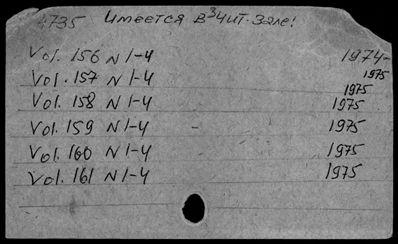 4735 Имеется в 3 чит. зале!
Vol. 156 N 1-4 1974-
1975
Vol. 157 N 1-4 1975
Vol. 158 N 1-4 1975
Vol. 159 N 1-4 - 1975
Vol. 160 N 1-4 1975
Vol. 161 N 1-4 1975